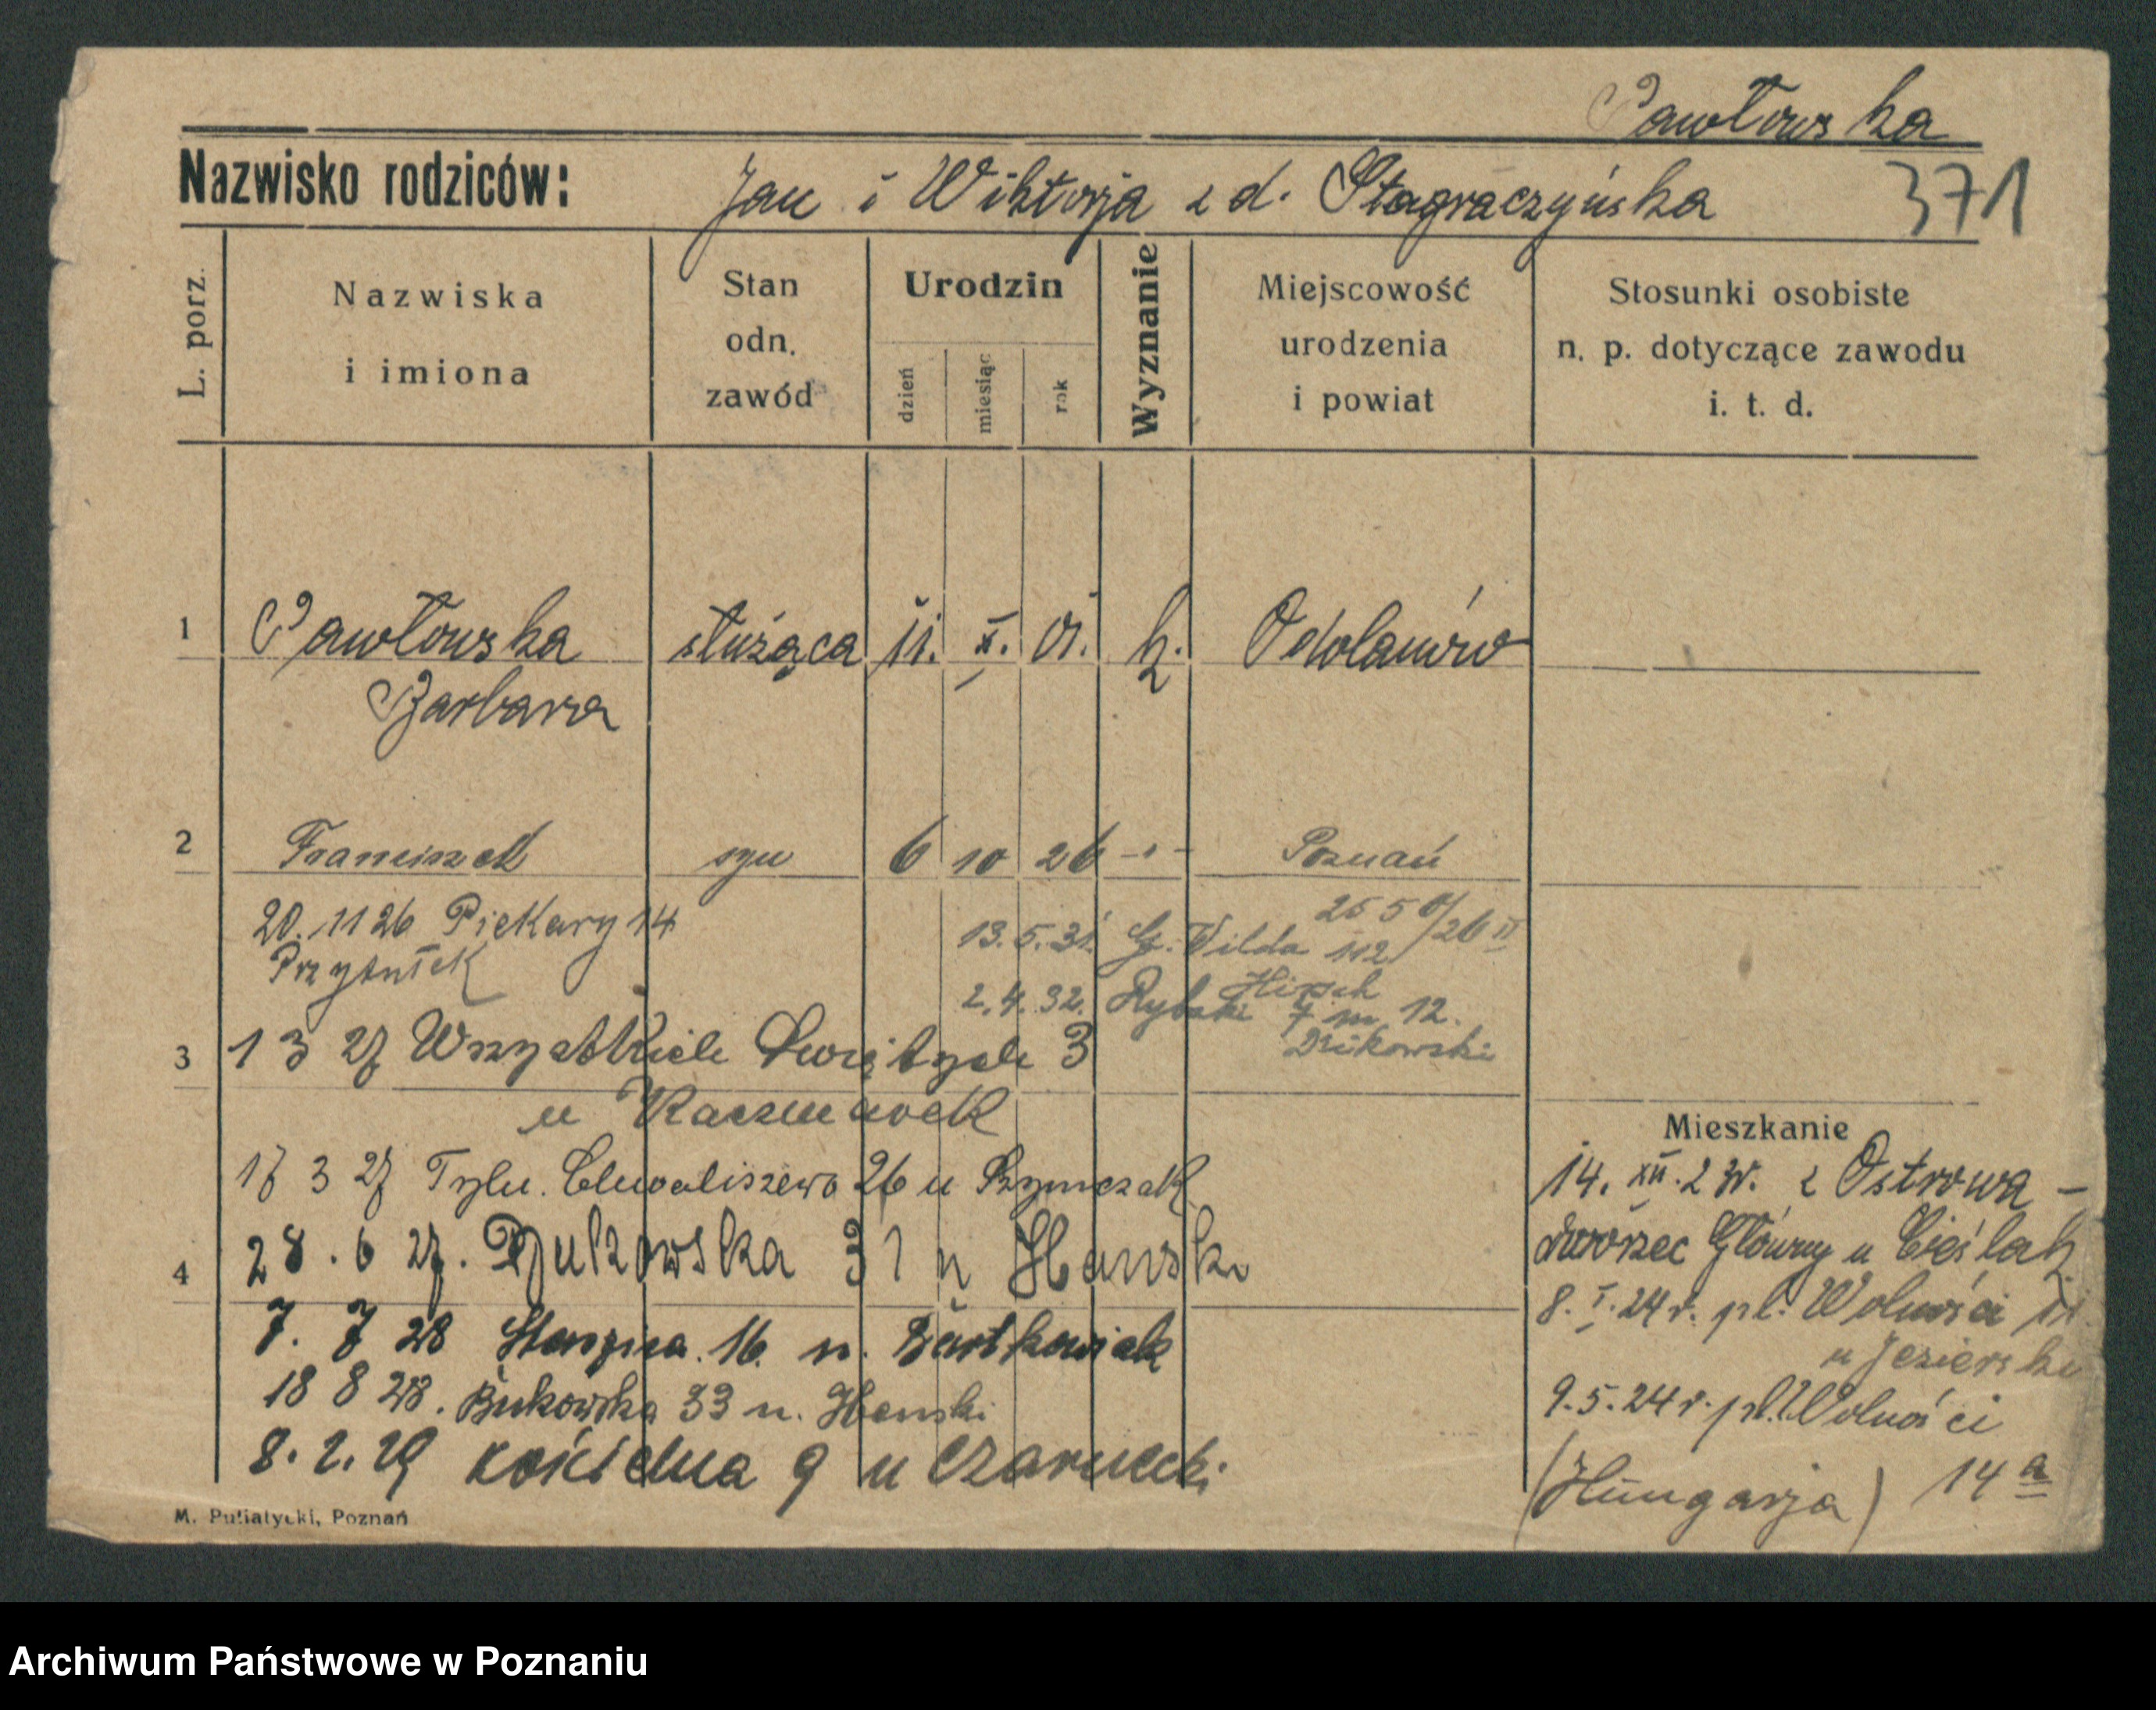 Pawłowska
Nazwisko rodziców: Jan i Wiktorja z d. Stagraczyńska 371
L. porz.
Nazwiska i imiona
Stan odn. zawód
Urodzin
dzień miesiąc rok
Wyznanie
Miejscowość urodzenia i powiat
Stosunki osobiste n. p. dotyczące zawodu i. t. d.
1 Pawłowska służąca 11. X. 01. k. Odolanów
Barbara
2 Franciszek syn 6 10 26 -"- Poznań
20. 11 26 Piekary 14
Przybułek
13.5.31. G. Wilda 112
Hirsch
2.4.32. Rybaki 7 m 12.
3 1 3 27 Wszystkich Świętych 3
u Kaczmarek
17 3 27 Tyln. Chwaliszewo 26 u Szymczak
4 28. 6 27. Bukowska 31 u Hański
7. 7 28 Staszica 16 u. Bartkowiak
18 8 28. Bukowska 33 u. Hański
8. 2. 29 Kościelna 9 u Czarnecki
Mieszkanie
14. XII. 23r. z Ostrowa –
dworzec Główny u Cieślak
8. I. 24 r. pl. Wolności 11
u Jezierski
9.5.24 r. pl. Wolności
(Hungarja) 14a
M. Putiatycki, Poznań
Archiwum Państwowe w Poznaniu